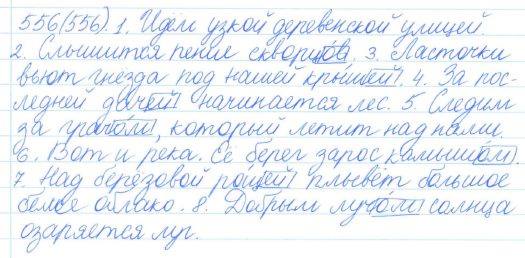 556(556). 1. Идём узкой деревенской улицей.
2. Слышится пение скворцов. 3. Ласточки
вьют гнёзда под нашей крышей. 4. За пос-
ледней дачей начинается лес. 5. Следим
за грачом, который летит над нами.
6. Вот и река. Её берег зарос камышом.
7. Над берёзовой рощей плывёт большое
белое облако. 8. Добрым лучом солнца
озаряется луг.